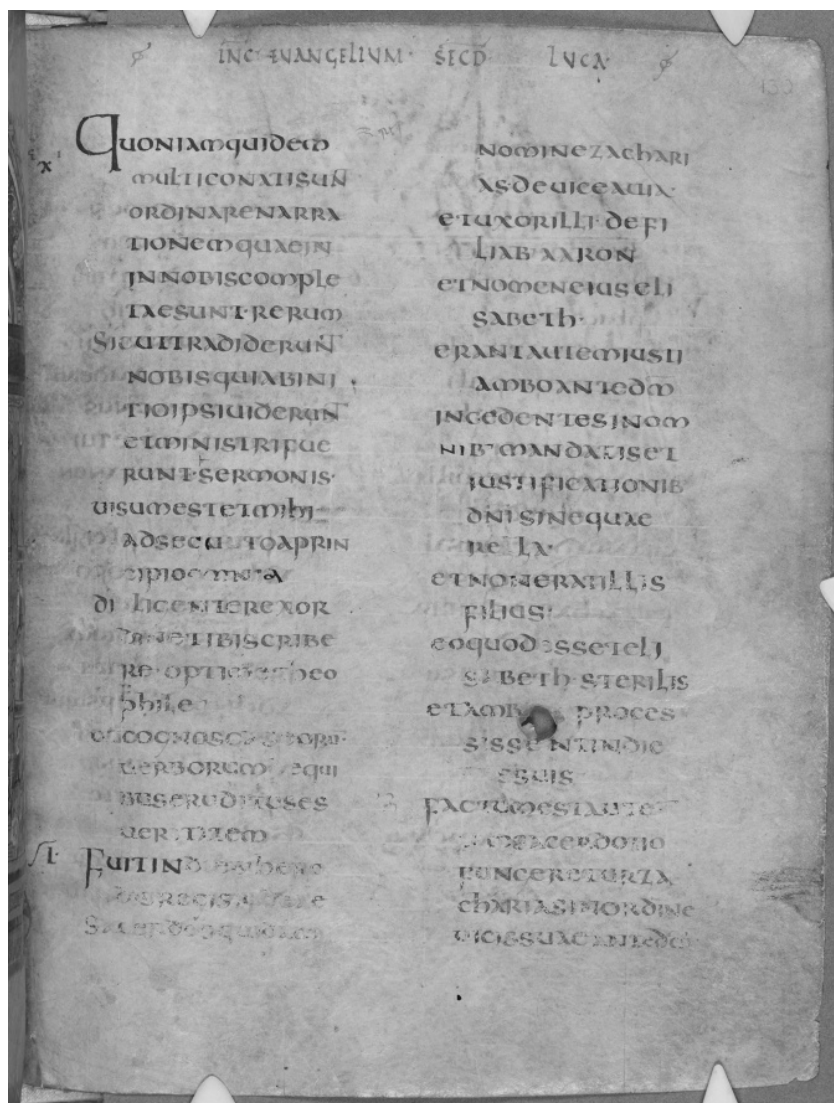 INC EVANGELIUM SECD LUCA
130
QUONIAMQUIDEM
MULTICONATISUN̄
ORDINARENARRA
TIONEMQUAEIN
INNOBISCOMPLE
TAESUNT·RERUM
SICUTTRADIDERUN̄
NOBISQUIABINI
TIOIPSIUIDERUNT
ETMINISTRIFUE
RUNT·SERMONIS·
UISUMESTETMIHI
ADSECUTOAPRIN
CIPIO
DILIGENTEREXOR
TIBISCRIBE
RE·
PHILE
UERBORUM EQUI
BUSERUDITUSES
UERITATEM
FUITIN
NOMINEZACHARI
AS·DEUICEAUIA·
ETUXORILLI·DEFI
LIAB·AARON̄
ETNOMENEIUSELI
SABETH·
ERANTAUTEMIUSTI
AMBOANTEDM̄
INCEDENTESINOM
NIB·MANDATISET
IUSTIFICATIONIB
DNISINEQUAE
RELLA·
ETNONERATILLIS
FILIUS·
EOQUODESSETELI
SABETH·STERILIS
ETAMB PROCES
FACTUMESTAUTE
FUNGERETURZA
CHARIASINORDINE
UICISSUAEANTEDM̄